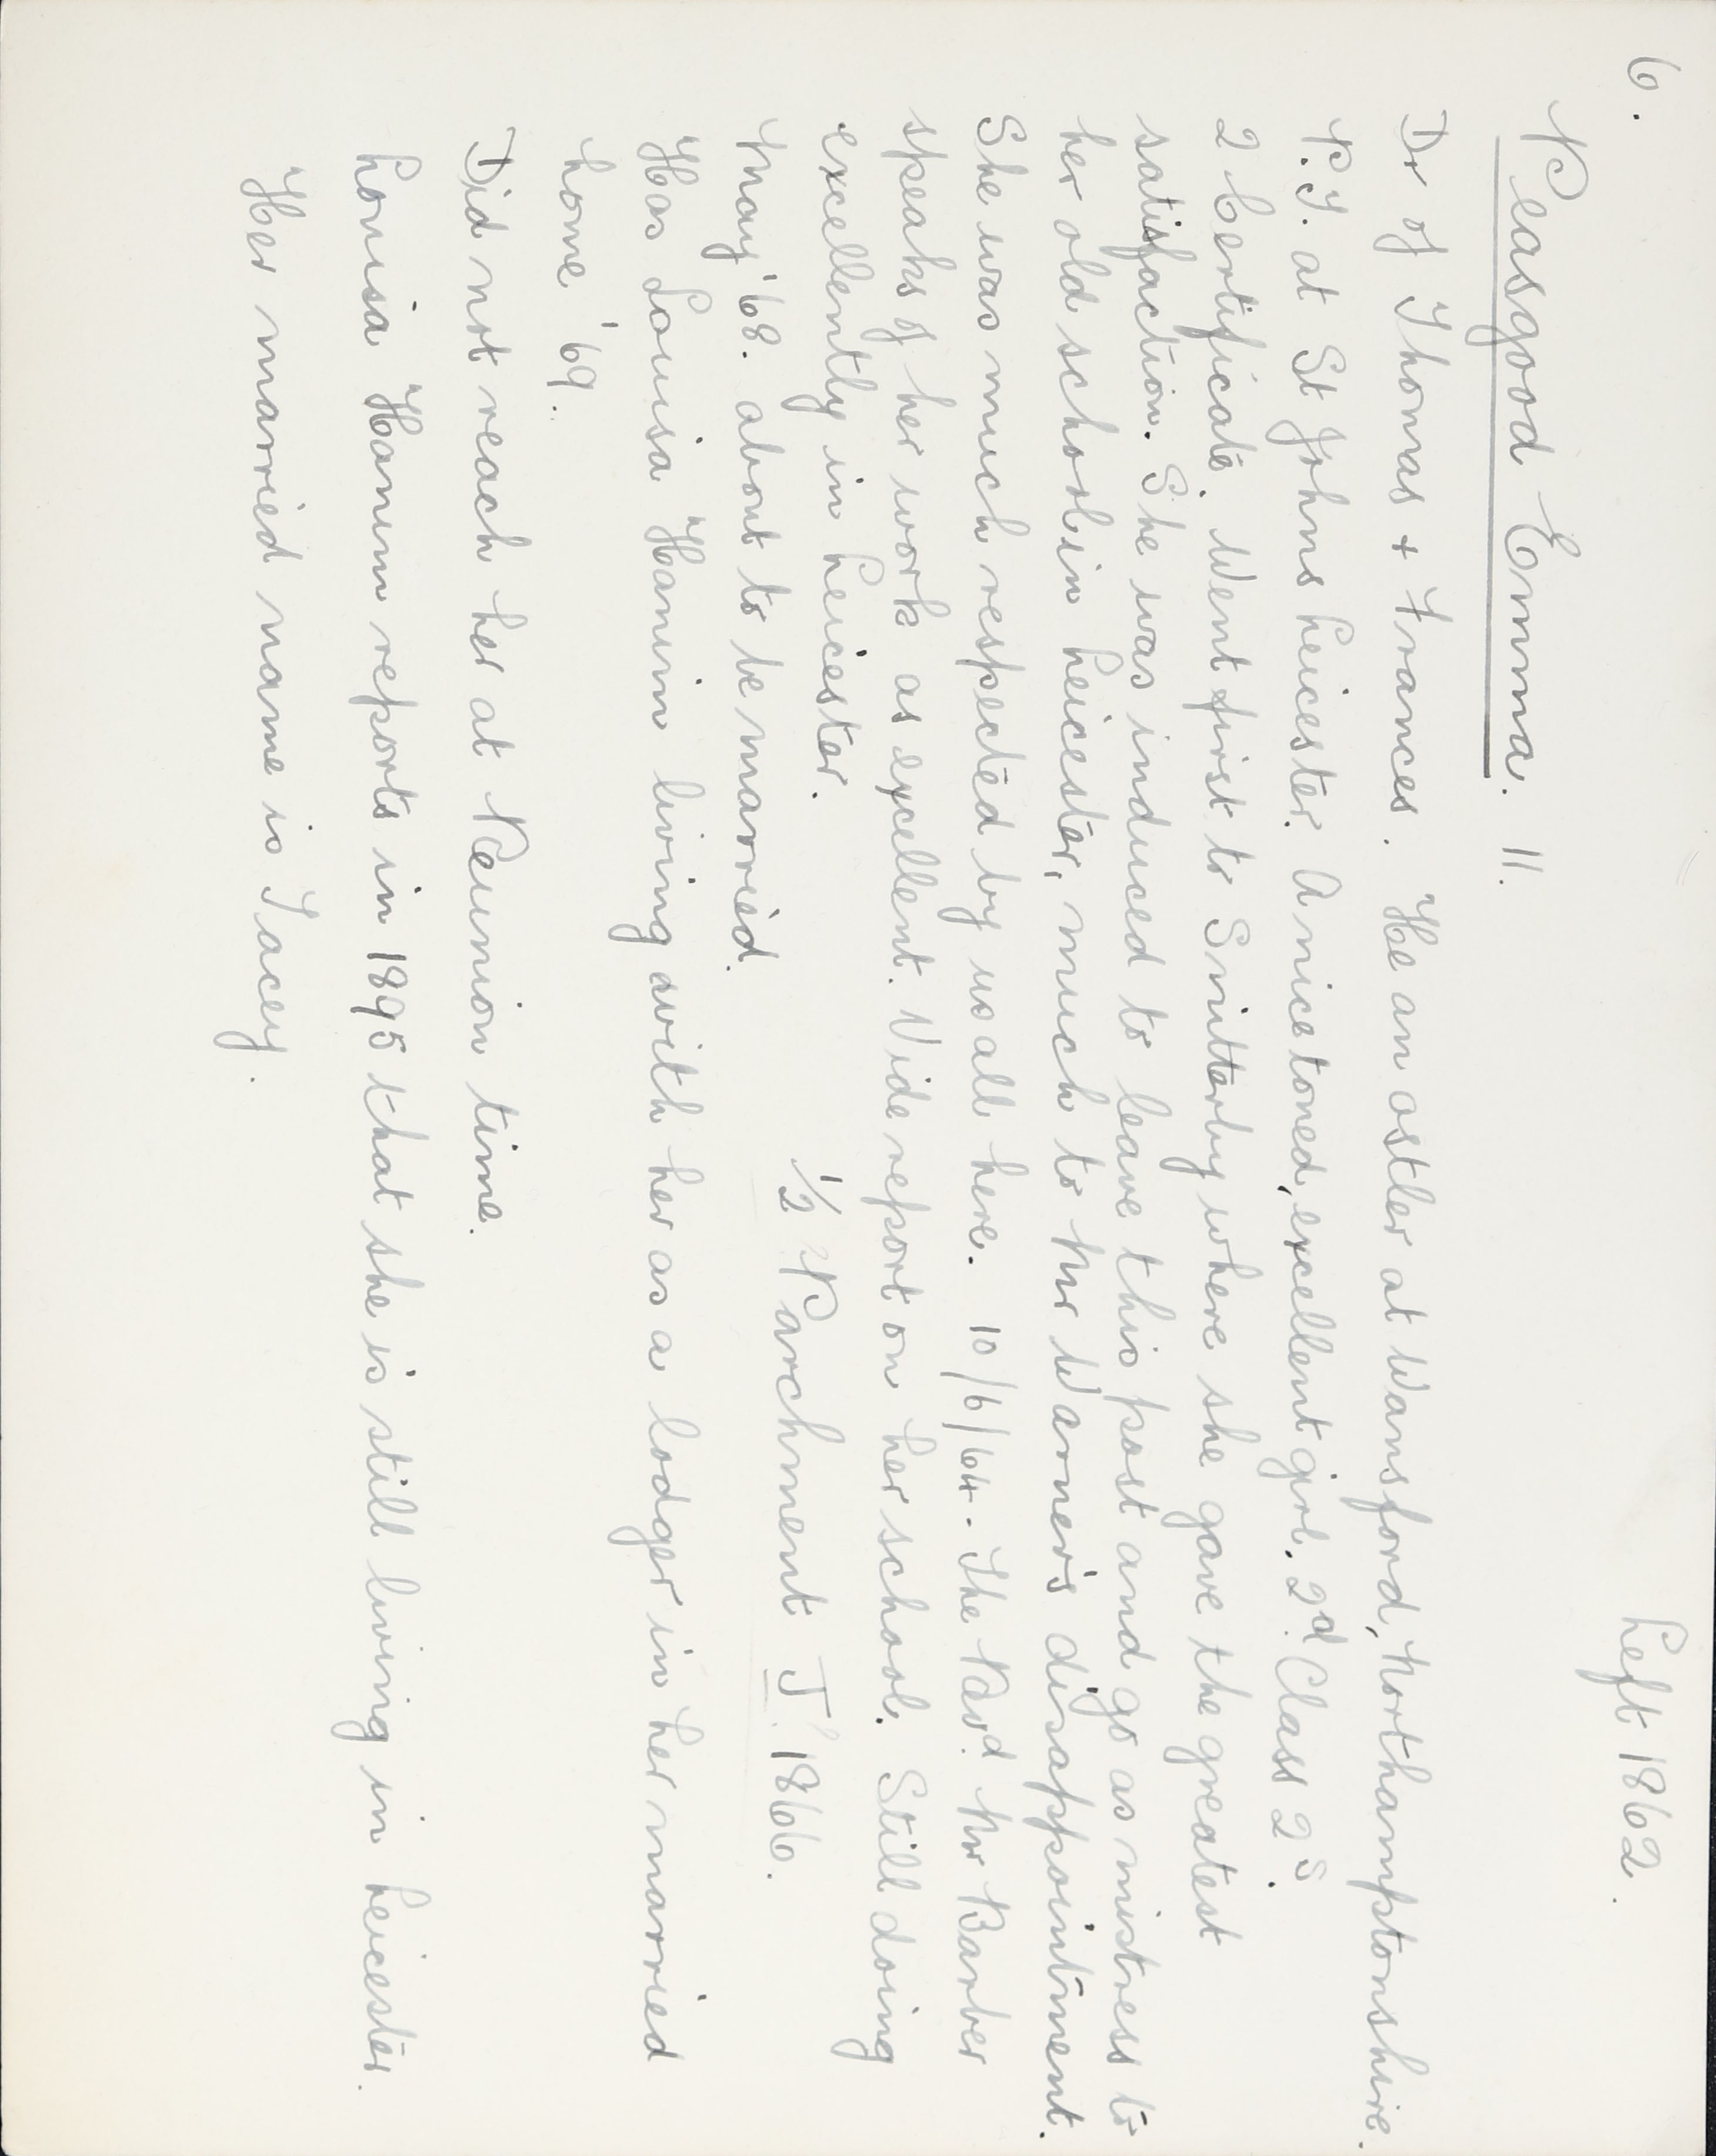 6.
Left 1862.
Peasgood Emma. 11.
Dr of Thomas + Frances. He an ostler at Wansford, Northamptonshire.
P.T. at St Johns Leicester. A nice toned, excellent girl. 2d Class 2s.
2 Certificate. Went first to Snitterby where she gave the greatest
satisfaction. She was induced to leave this post and go as mistress to
her old school in Leicester, much to Mr Warner's disappointment.
She was much respected by us all here. 10/6/64 - The Revd. Mr Barber
speaks of her work as excellent. Vide report on her school. Still doing
excellently in Leicester.
1/2 Parchment J. 1866.
May '68. about to be married.
Has Louisa Hanim living with her as a lodger in her married
home '69.
Did not reach her at Reunion time.
Louisa Hanim reports in 1895 that she is still living in Leicester.
Her married name is Tacey.